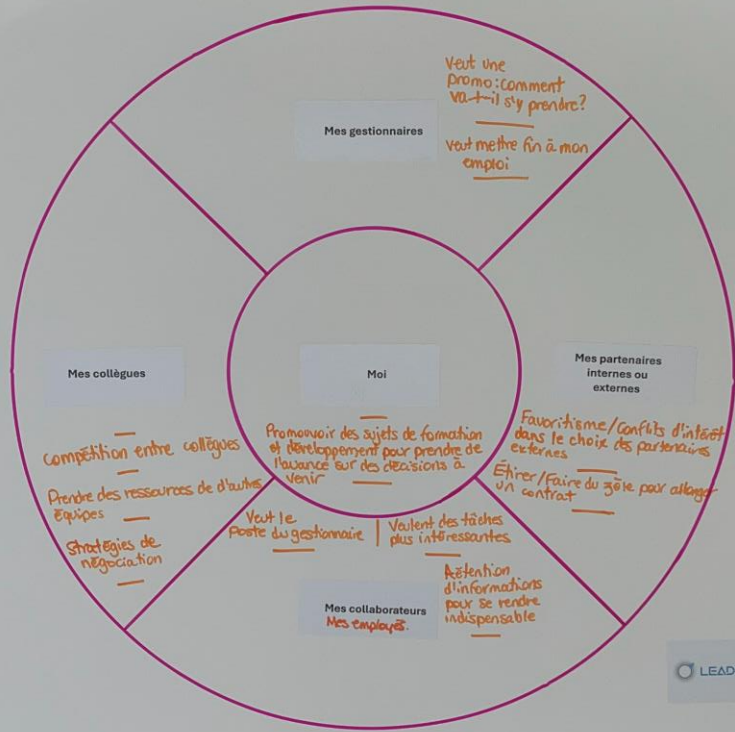 Veut une
promo: comment
va-t-il s'y prendre?
Mes gestionnaires
veut mettre fin à mon
emploi
Mes collègues
compétition entre collègues
Prendre des ressources de d'autres
équipes
Stratégies de
négociation
Moi
Promouvoir des sujets de formation
et développement pour prendre de
l'avance sur des décisions à
venir
Mes partenaires
internes ou
externes
Favoritisme/Conflits d'intérêt
dans le choix des partenaires
externes
Étirer/Faire du zèle pour allonger
un contrat
Veut le
poste du gestionnaire
Veulent des tâches
plus intéressantes
Rétention
d'informations
pour se rendre
indispensable
Mes collaborateurs
Mes employés.
LEAD